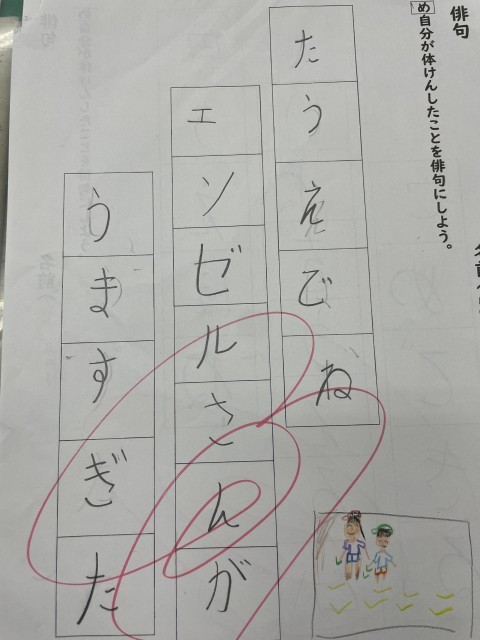 俳句
め自分が体けんしたことを俳句にしよう。
たうえでね
エンゼルさんが
うますぎた